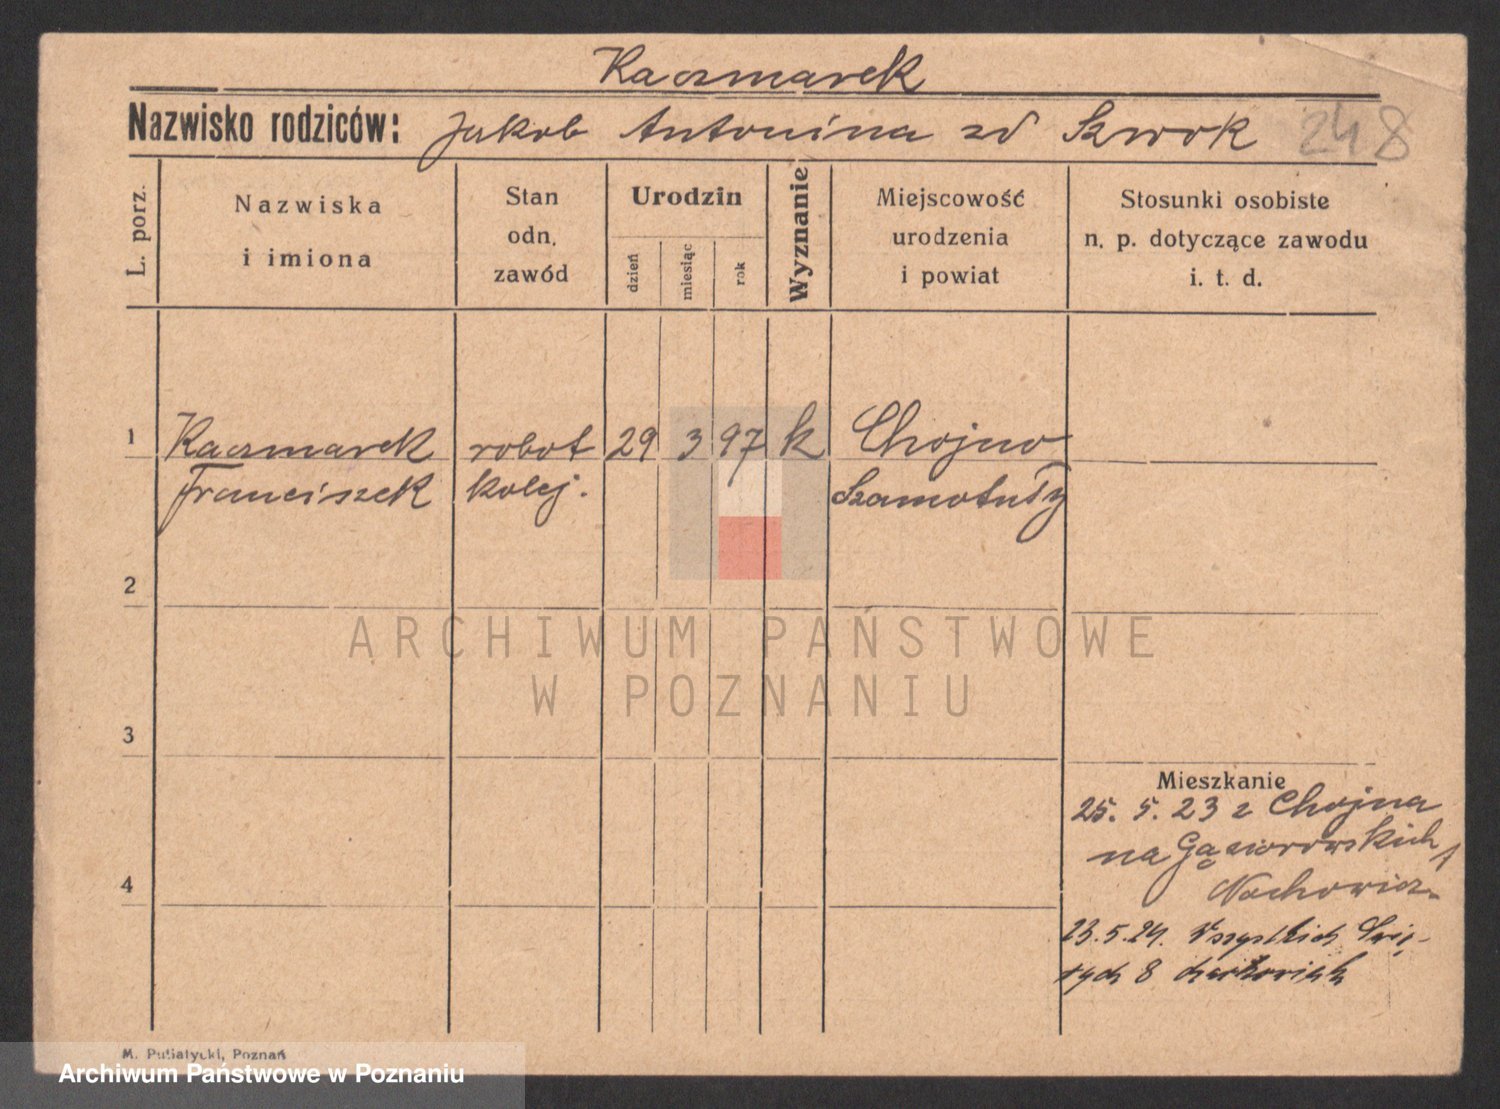 Kaczmarek
Nazwisko rodziców: Jakob Antonina zd Szwok 248
L. porz.
Nazwiska
i imiona
Stan
odn.
zawód
Urodzin
dzień
miesiąc
rok
Wyznanie
Miejscowość
urodzenia
i powiat
Stosunki osobiste
n. p. dotyczące zawodu
i. t. d.
1 Kaczmarek robot 29 3 97 k Chojno
Franciszek kolej. Szamotuły
2
ARCHIWUM PAŃSTWOWE
W POZNANIU
3
Mieszkanie
25. 5. 23 z Chojna
na Gąsiorowskich 1
4
23.5.24. Wszystkich Świę-
tych 8
M. Putiatycki, Poznań
Archiwum Państwowe w Poznaniu